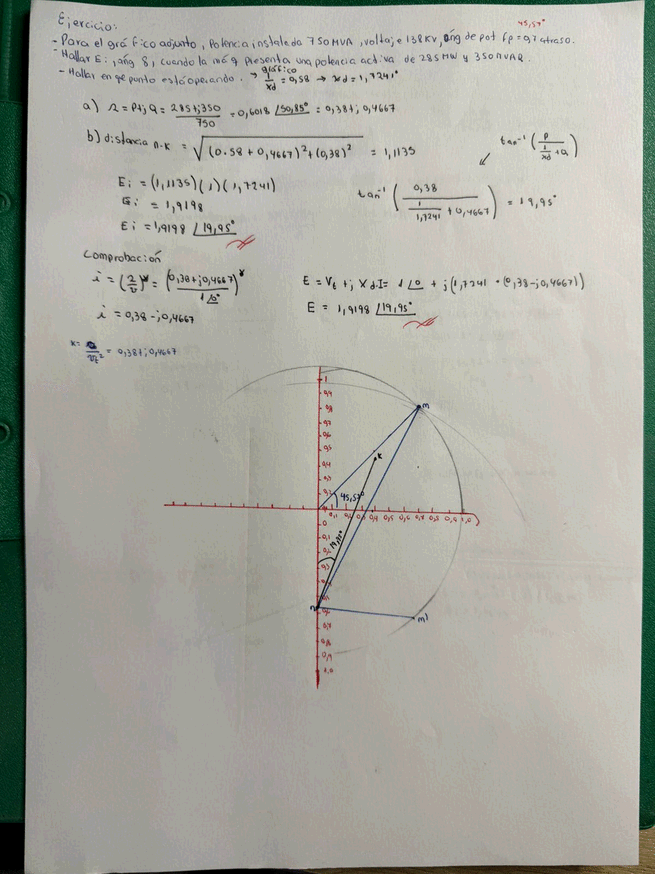 Ejercicio:
45,57°
- Para el gráfico adjunto, Potencia instalada 750MVA, voltaje 138KV, áng de pot fp=0,7 atraso.
- Hallar Ei, áng δ, cuando la máq presenta una potencia activa de 285MW y 350MVAR.
- Hallar en qe punto está operando. → gráfico 1/xd = 0,58 → xd = 1,7241°
a) s = P+jQ = 285+j350/750 = 0,6018 ∠50,85° = 0,38+j0,4667
b) distancia n-k = √(0.58+0,4667)²+(0,38)² = 1,1135
tan⁻¹ (P / 1/xd + Q)
Ei = (1,1135)(1)(1,7241)
Ei = 1,9198
Ei = 1,9198 ∠19,95°
tan⁻¹ (0,38 / 1/1,7241 + 0,4667) = 19,95°
Comprobación
i = (s/v)* = (0,38+j0,4667 / 1∠0°)*
i = 0,38-j0,4667
E = Vt + j Xd.I = 1∠0 + j(1,7241 * (0,38-j0,4667))
E = 1,9198 ∠19,95°
k = s/vt² = 0,38+j0,4667
1
0,9
0,8
0,7
0,6
0,5
0,4
0,3
0,2
m
k
45,57°
0,1 0,2 0,3 0,4 0,5 0,6 0,7 0,8 0,9 1,0
0
0,1
0,2
0,3
19,95°
n
m'
0,8
0,9
1,0